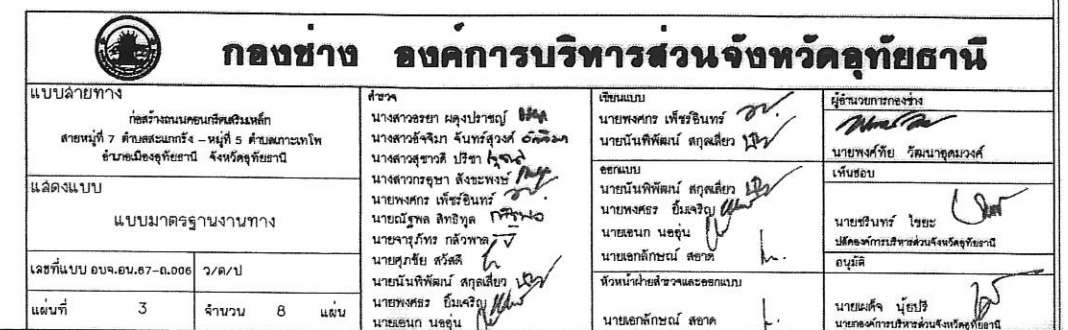 กองช่าง องค์การบริหารส่วนจังหวัดอุทัยธานี
แบบสายทาง
ก่อสร้างถนนคอนกรีตเสริมเหล็ก
สายหมู่ที่ 7 ตำบลสะแกกรัง – หมู่ที่ 5 ตำบลเกาะเทโพ
อำเภอเมืองอุทัยธานี จังหวัดอุทัยธานี
แสดงแบบ
แบบมาตรฐานงานทาง
เลขที่แบบ อบจ.อน.67-ถ.006 ว/ด/ป
แผ่นที่ 3 จำนวน 8 แผ่น
สำรวจ
นางสาวอรยา ผดุงปราชญ์
นางสาวอัจจิมา จันทร์สุวงศ์
นางสาวสุชาวดี ปรีชา
นางสาวกรอุษา สังขะพงษ์
นายพงศกร เพ็ชร์อินทร์
นายณัฐพล สิทธิทูล
นายจารุภัทร กลัวพาล
นายศุภชัย สวัสดี
นายนันพิพัฒน์ สกุลเสี่ยว
นายพงศธร ยิ้มเจริญ
นายเอนก นออุ่น
เขียนแบบ
นายพงศกร เพ็ชร์อินทร์
นายนันพิพัฒน์ สกุลเสี่ยว
ออกแบบ
นายนันพิพัฒน์ สกุลเสี่ยว
นายพงศธร ยิ้มเจริญ
นายเอนก นออุ่น
นายเอกลักษณ์ สอาด
หัวหน้าฝ่ายสำรวจและออกแบบ
นายเอกลักษณ์ สอาด
ผู้อำนวยการกองช่าง
นายพงศ์ทัย วัฒนาอุดมวงศ์
เห็นชอบ
นายชรินทร์ ไชยะ
ปลัดองค์การบริหารส่วนจังหวัดอุทัยธานี
อนุมัติ
นายเผด็จ นุ้ยปรี
นายกองค์การบริหารส่วนจังหวัดอุทัยธานี